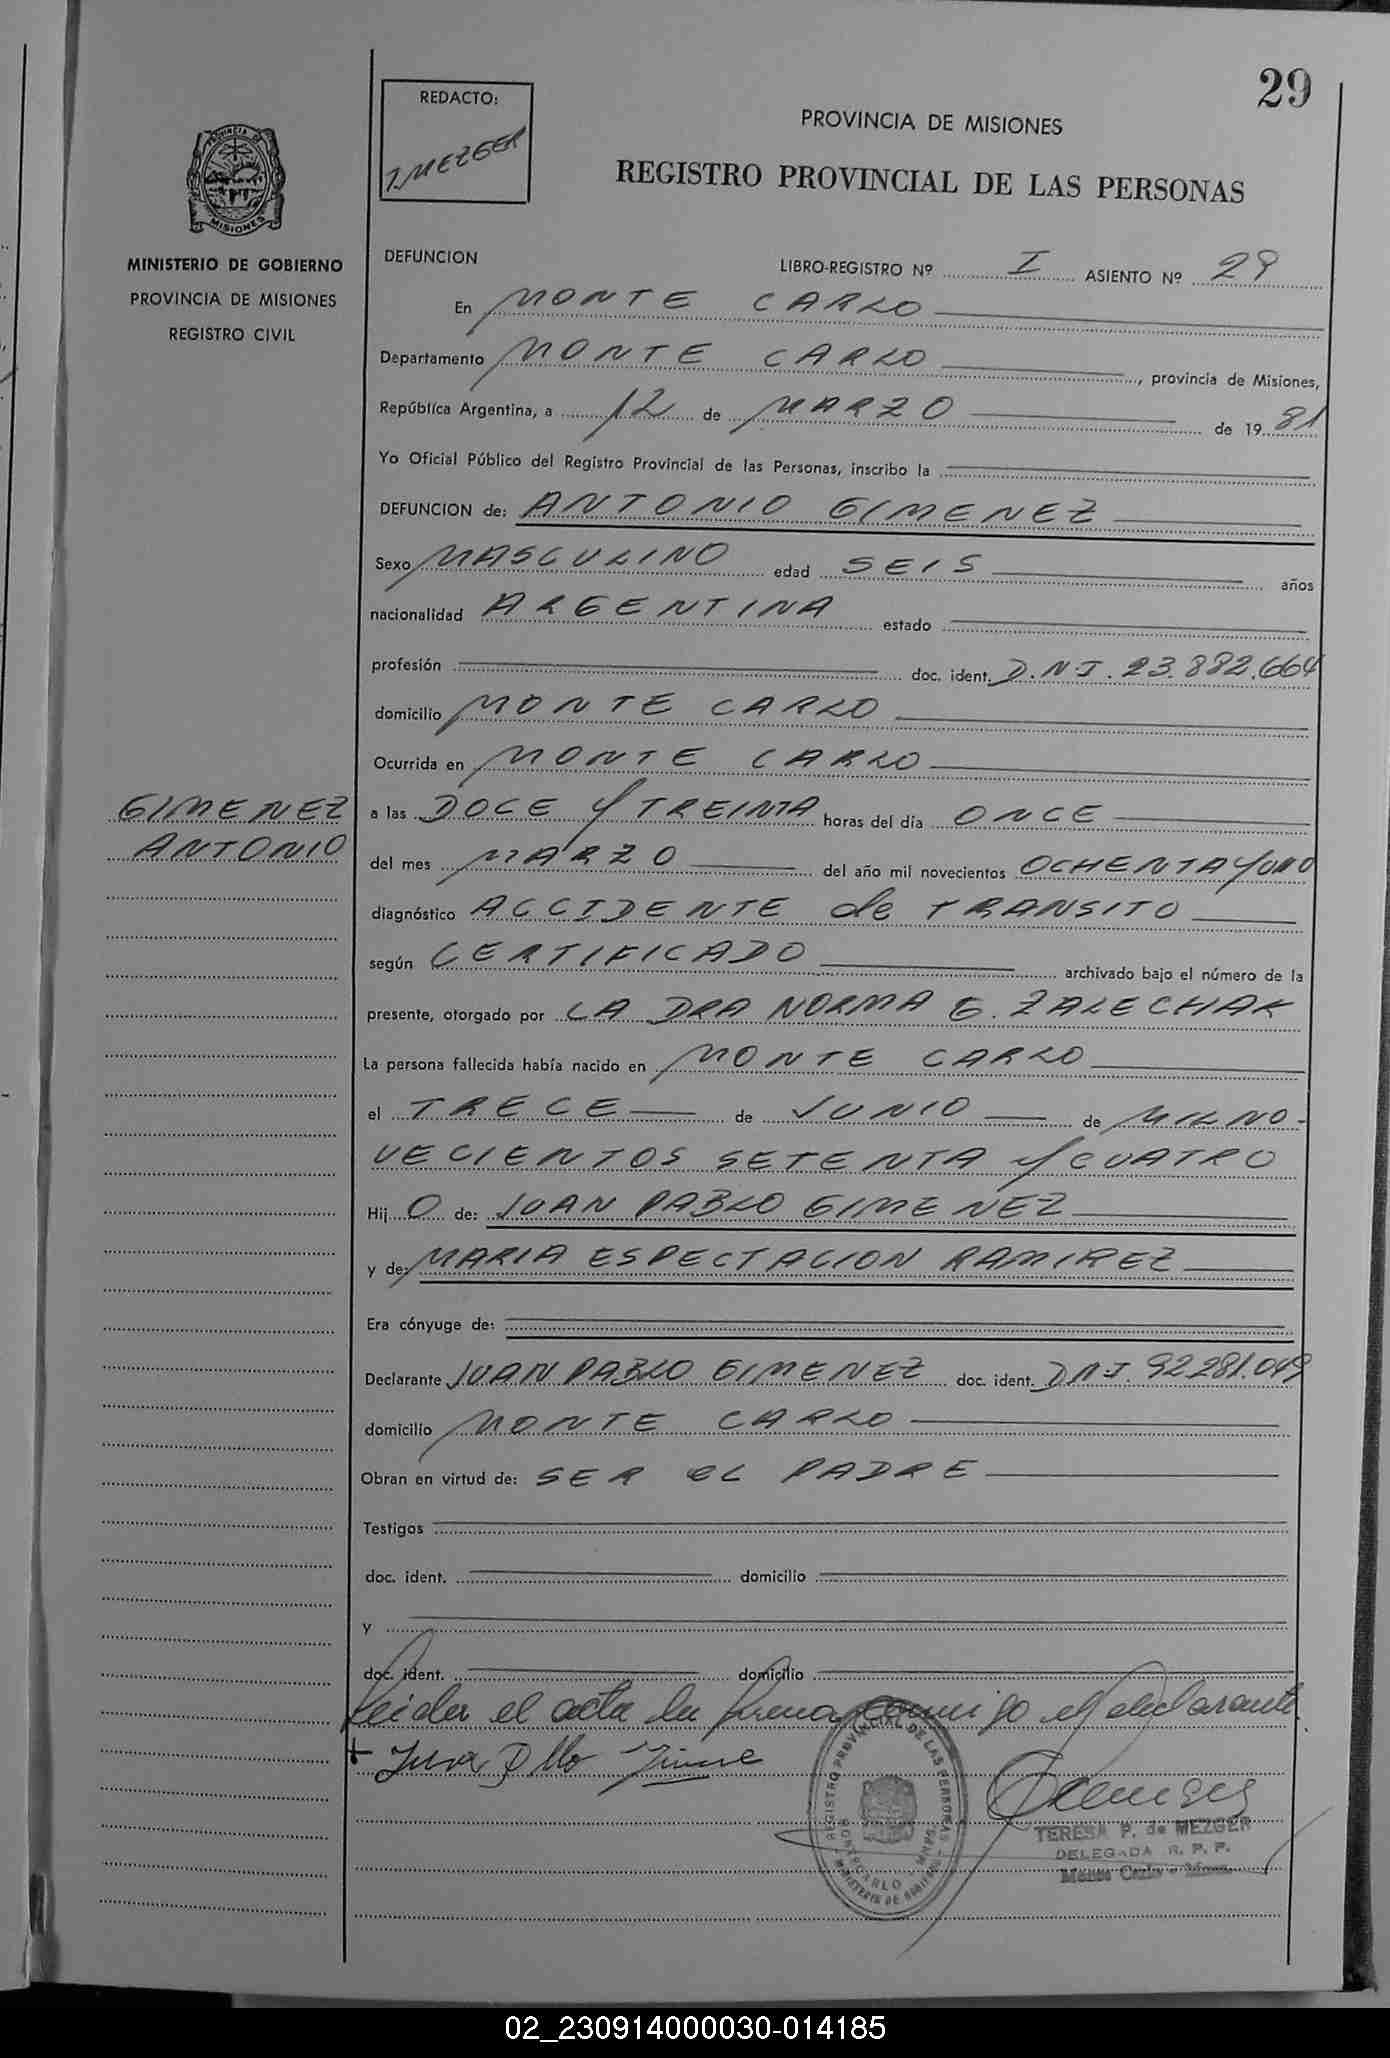 29
REDACTO:
T. MEZGER
PROVINCIA DE MISIONES
REGISTRO PROVINCIAL DE LAS PERSONAS
PROVINCIA DE
MISIONES
MINISTERIO DE GOBIERNO
PROVINCIA DE MISIONES
REGISTRO CIVIL
DEFUNCION
LIBRO-REGISTRO Nº I ASIENTO Nº 29
En MONTE CARLO
Departamento MONTE CARLO, provincia de Misiones,
República Argentina, a 12 de MARZO de 1981
Yo Oficial Público del Registro Provincial de las Personas, inscribo la
DEFUNCION de: ANTONIO GIMENEZ
Sexo MASCULINO edad SEIS años
nacionalidad ARGENTINA estado
profesión doc. ident. D.N.I. 23.882.664
domicilio MONTE CARLO
Ocurrida en MONTE CARLO
GIMENEZ
ANTONIO
a las DOCE Y TREINTA horas del día ONCE
del mes MARZO del año mil novecientos OCHENTA Y UNO
diagnóstico ACCIDENTE de TRANSITO
según CERTIFICADO archivado bajo el número de la
presente, otorgado por LA DRA NORMA G. ZALECHAK
La persona fallecida había nacido en MONTE CARLO
el TRECE de JUNIO de MIL NO-
VECIENTOS SETENTA Y CUATRO
Hij O de: JUAN PABLO GIMENEZ
y de: MARIA ESPECTACION RAMIREZ
Era cónyuge de:
Declarante JUAN PABLO GIMENEZ doc. ident. D.N.I. 92.281.049
domicilio MONTE CARLO
Obran en virtud de: SER EL PADRE
Testigos
doc. ident. domicilio
y
doc. ident. domicilio
Leida el acta la firma conmigo el declarante.
+ Juan Pblo
REGISTRO PROVINCIAL DE LAS PERSONAS
MONTECARLO - MNES.
MINISTERIO DE GOBIERNO
TERESA P. de MEZGER
DELEGADA R. P. P.
Monte Carlo - Mnes.
02_230914000030-014185